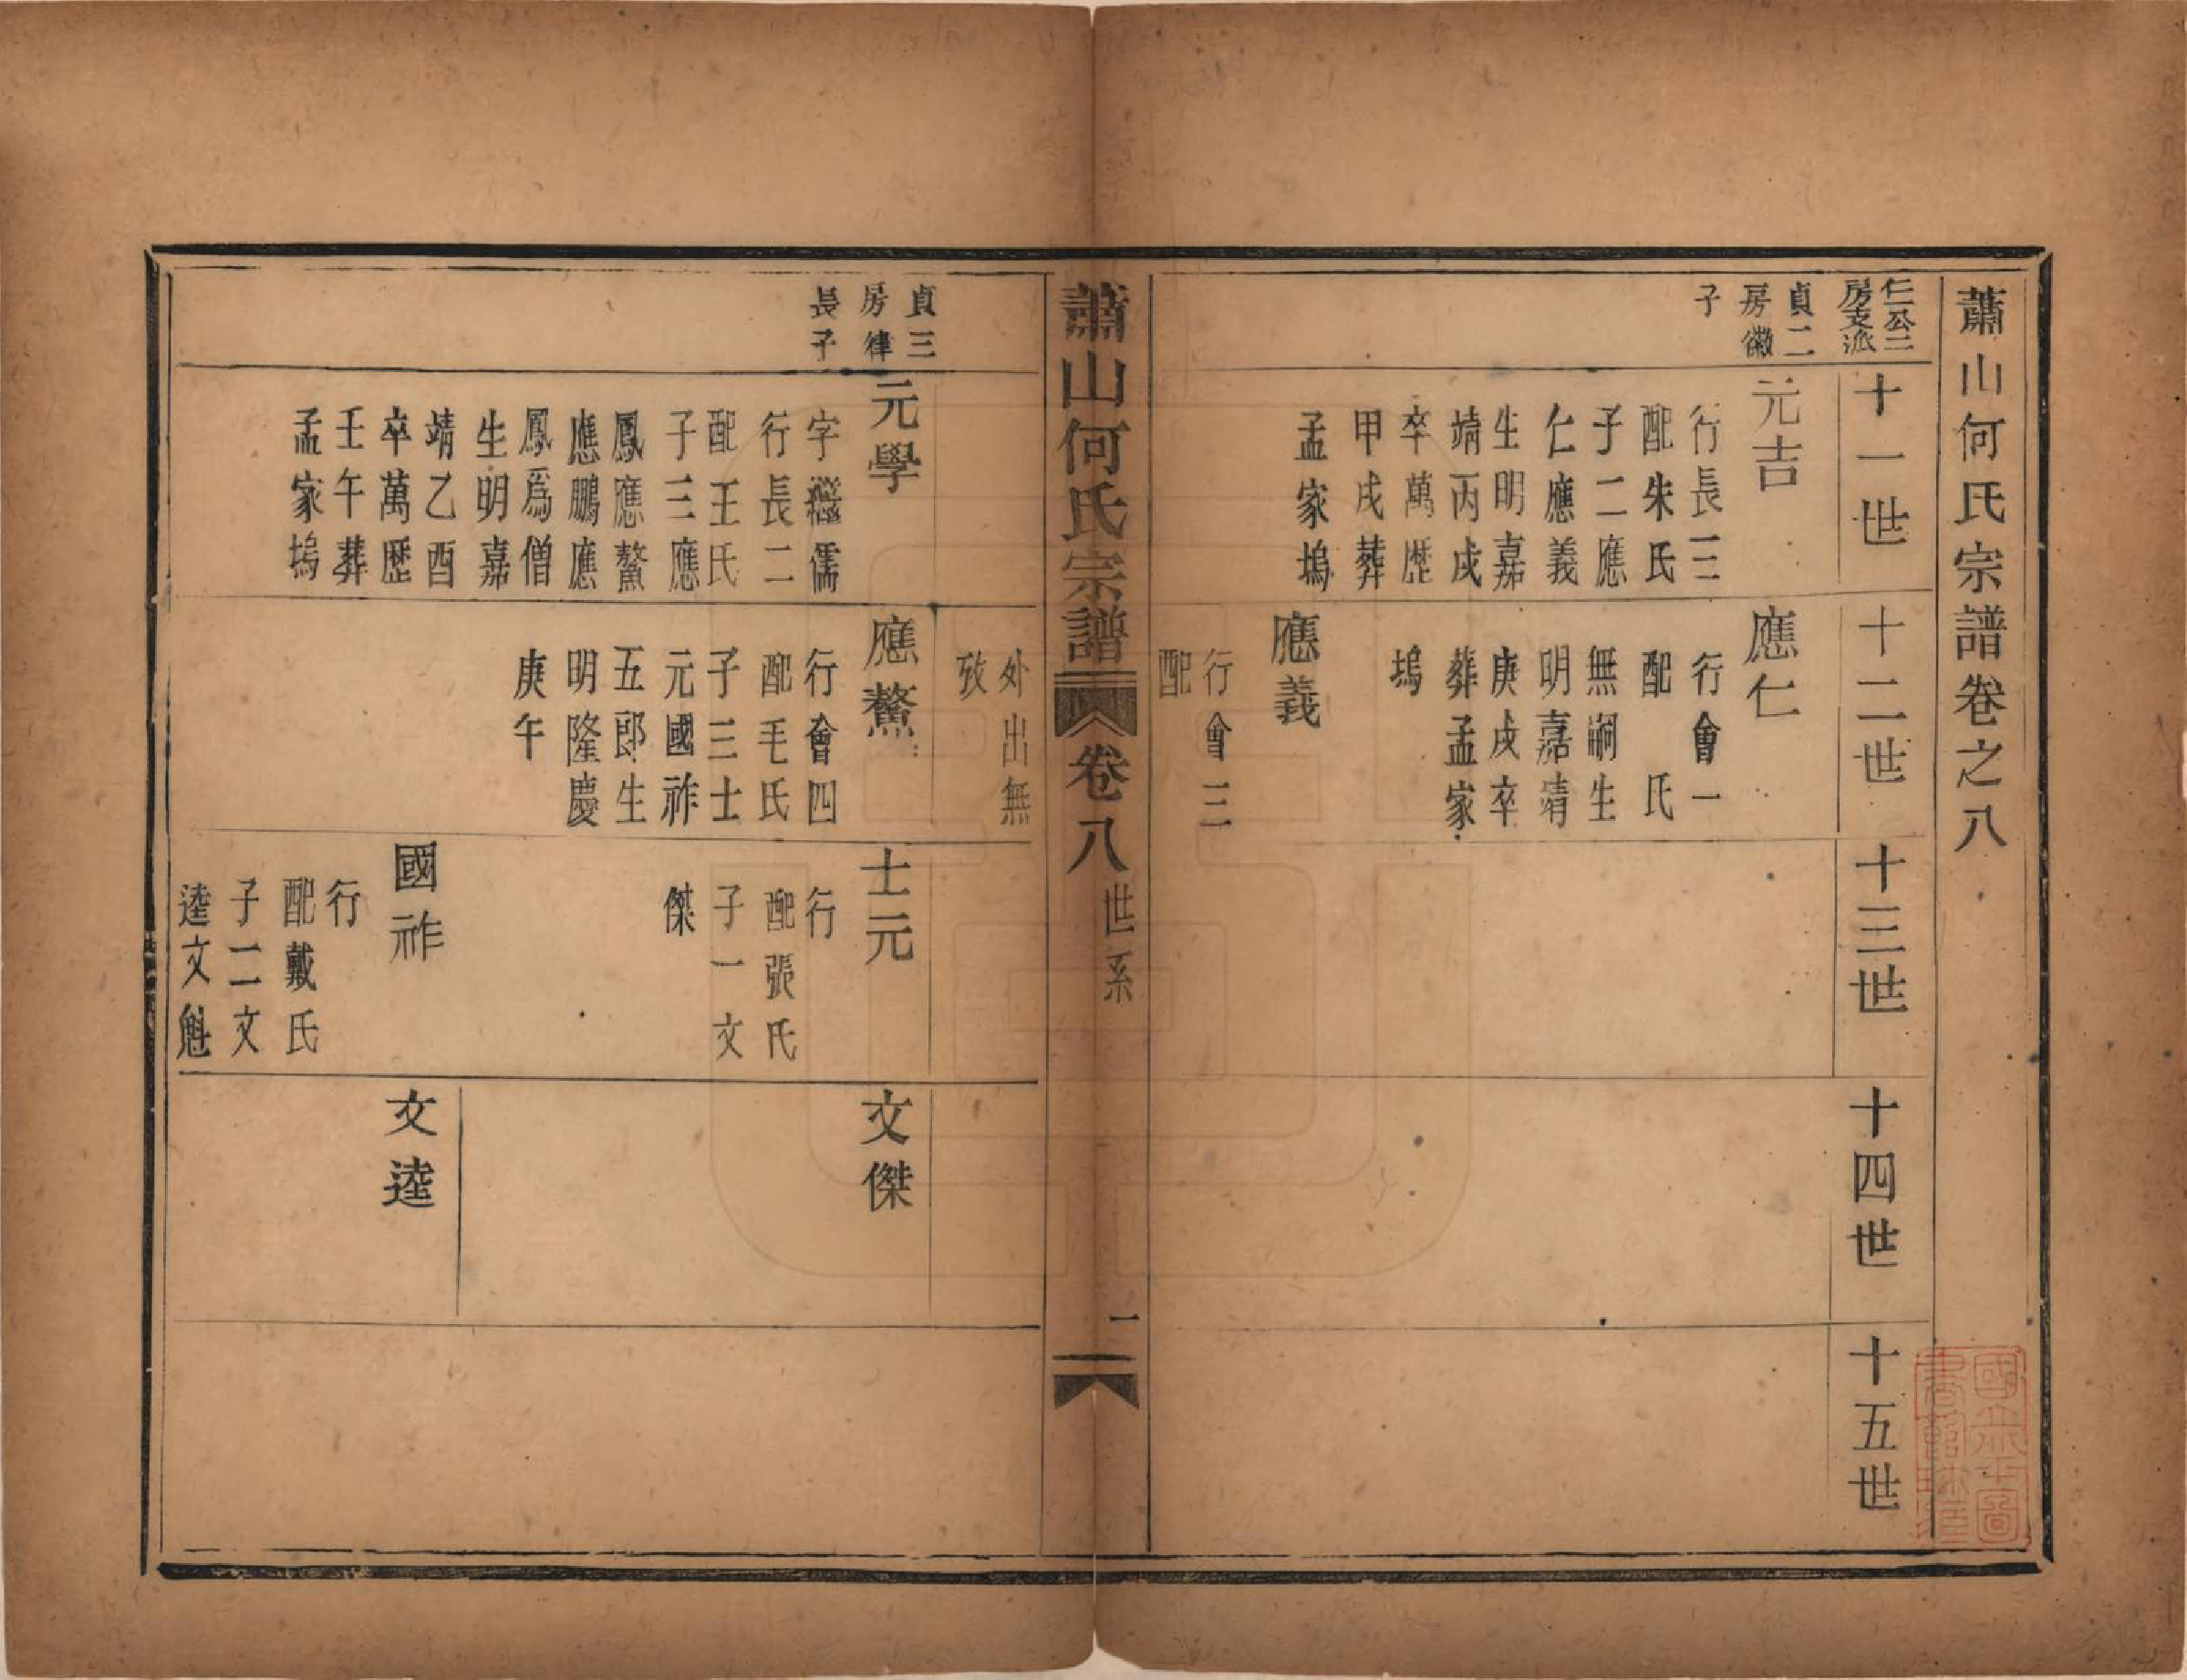 蕭山何氏宗譜卷之八
仁二公二
房支派
十一世
十二世
十三世
十四世
十五世
貞二
房徽
子
元吉
行長三
配朱氏
子二應
仁應義
生明嘉
靖丙戌
卒萬歷
甲戌葬
孟家塢
應仁
行會一
配 氏
無嗣生
明嘉靖
庚戌卒
葬孟家
塢
應義
行會三
配
蕭山何氏宗譜 卷八 世系 一
外出無
攷
貞三
房律
長子
元學
行長二
配王氏
子三應
鳳應鰲
應鵬應
鳳爲僧
生明嘉
靖乙酉
卒萬歷
壬午葬
孟家塢
應鰲
行會四
配毛氏
子三士
元國祚
五郎生
明隆慶
庚午
士元
行
配張氏
子一文
傑
文傑
國祚
行
配戴氏
子二文
逵文魁
文逵